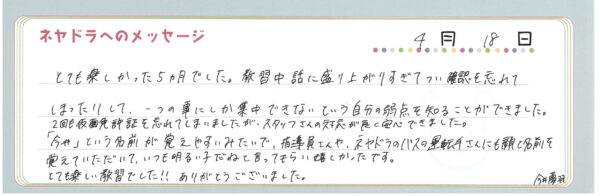 ネヤドラへのメッセージ
4月 18日
とても楽しかった5ヵ月でした。教習中話に盛り上がりすぎてつい確認を忘れて
しまったりして、一つの事にしか集中できないという自分の弱点を知ることができました。
2回も仮免許証を忘れてしまいましたが、スタッフさんの対応が良く安心できました。
「今せ」という名前が覚えやすいみたいで、指導員さんや、ネヤドラのバスの運転手さんにも顔と名前を
覚えていただいて、いつも明るい子だねと言ってもらい嬉しかったです。
とても楽しい教習でした!! ありがとうございました。